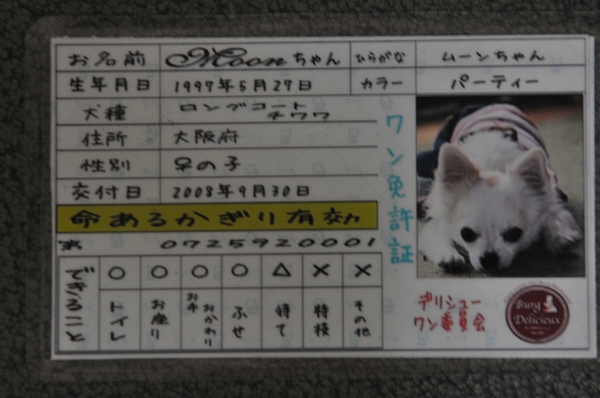 お名前 Moonちゃん ひらがな ムーンちゃん
生年月日 1997年5月27日 カラー パーティー
犬種 ロングコートチワワ
住所 大阪府
性別 ♀の子
交付日 2008年9月30日
命あるかぎり有効
第 0725920001
ワン免許証
できること
○ ○ ○ ○ △ × ×
トイレ お座り お手おかわり ふせ 待て 特技 その他
デリシュー
ワン委員会
Burg
Delicieux